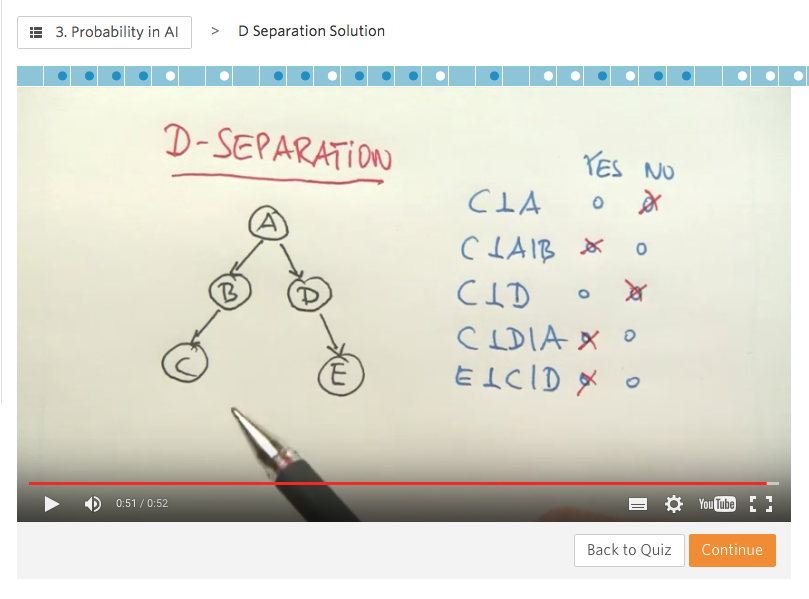 3. Probability in AI > D Separation Solution
D-SEPARATION
YES NO
A
B
D
C
E
C⊥A
C⊥A|B
C⊥D
C⊥D|A
E⊥C|D
0:51 / 0:52
YouTube
Back to Quiz
Continue